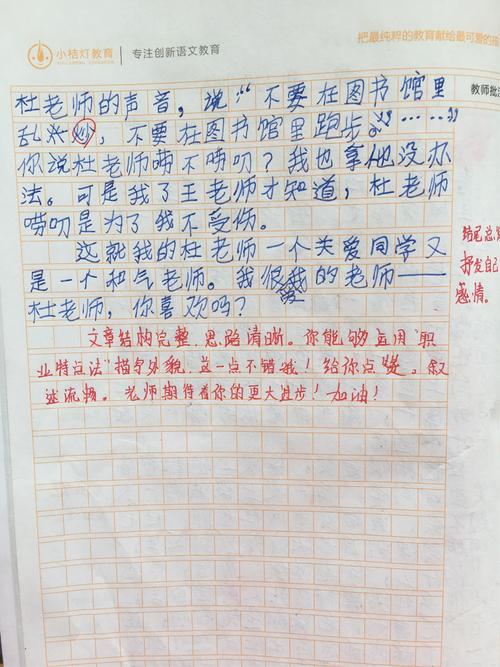 小桔灯教育
专注创新语文教育
把最纯粹的教育献给最可爱的孩
教师批
杜老师的声音，说“不要在图书馆里
乱吵，不要在图书馆里跑步。……”
你说杜老师唠不唠叨？我也拿他没办
法。可是我了王老师才知道，杜老师
唠叨是为了我不受伤。
这就我的杜老师一个关爱同学又
是一个和气老师。我很爱我的老师——
杜老师，你喜欢吗？
结尾总
抒发自己
感情。
文章结构完整，思路清晰。你能够运用“职
业特点法”描写外貌，这一点不错哦！给你点赞。叙
述流畅。老师期待着你的更大进步！加油！